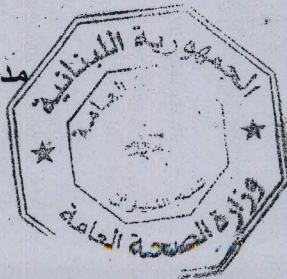 مد
الجمهورية اللبنانية
وزارة الصحة العامة
العامة